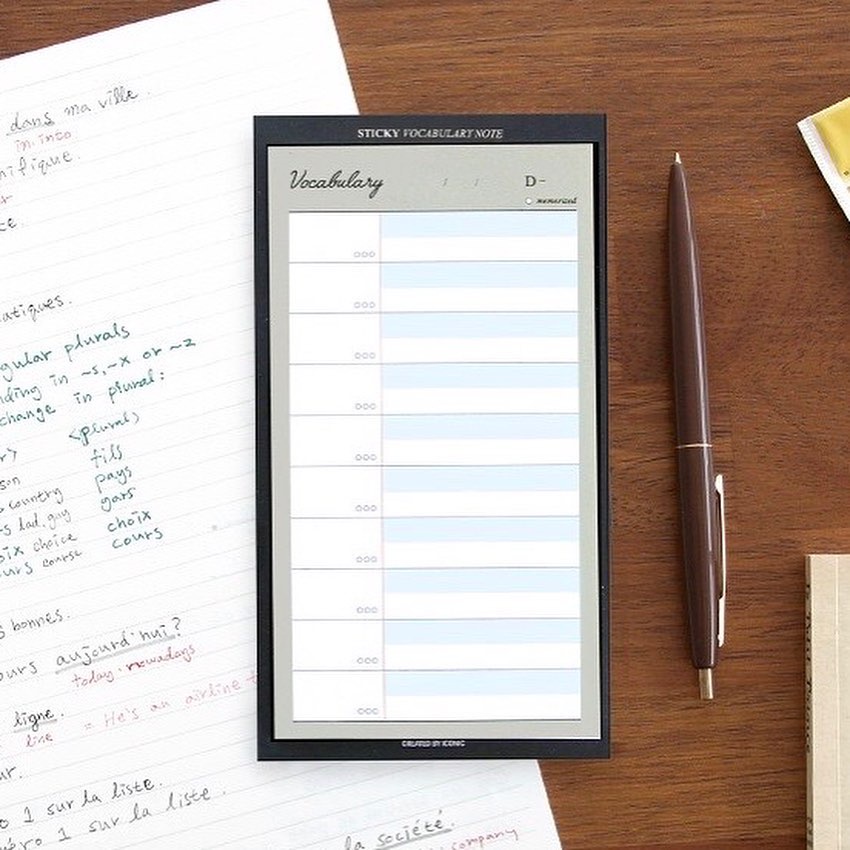 dans ma ville.
in.into
nifique.
STICKY VOCABULARY NOTE
Vocabulary / / D-
memorized
atiques.
gular plurals
nding in ~s, ~x or ~z
change in plural:
(plural)
fils
country pays
s lad, guy gars
oix choice choix
urs course cours
s bonnes.
ours aujourd'hui?
today. nowadays
ligne.
line = He's an airline
ur.
o 1 sur la liste.
éro 1 sur la liste.
CREATED BY ICONIC
la société.
company